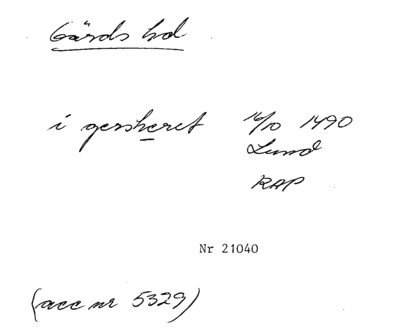 Gärds hd
i gersheret 16/10 1490
Lund
RAP
Nr 21040
(acc nr 5329)